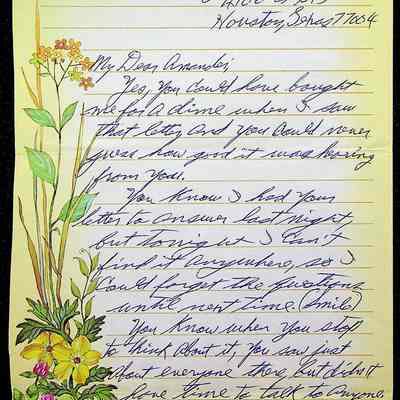 Houston, Texas 77004
My Dear Amanda;
Yes, you could have bought
me for a dime when I saw
that letter and you could never
guess how good it was hearing
from you.
You know I had your
letter to answer last night,
but tonight I can't
find it anywhere, so I
could forget the questions
until next time. (Smile)
You know when you stop
to think about it, you saw just
about everyone there, but didn't
have time to talk to anyone,